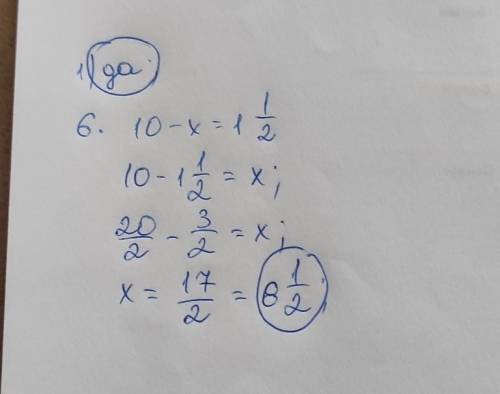 1) да
6. 10 - x = 1 1/2
10 - 1 1/2 = x;
20/2 - 3/2 = x;
x = 17/2 = 8 1/2